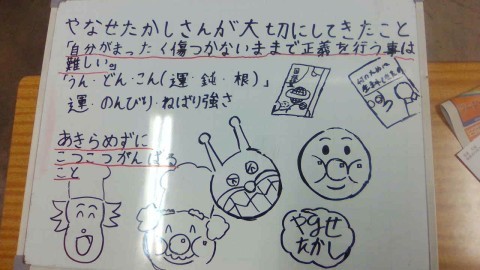 やなせたかしさんが大切にしてきたこと
「自分がまったく傷つかないままで正義を行う事は
難しい。
「うん・どん・こん(運・鈍・根)」
運・のんびり・ねばり強さ
あきらめずに
こつこつがんばる
こと
やなせ
たかし